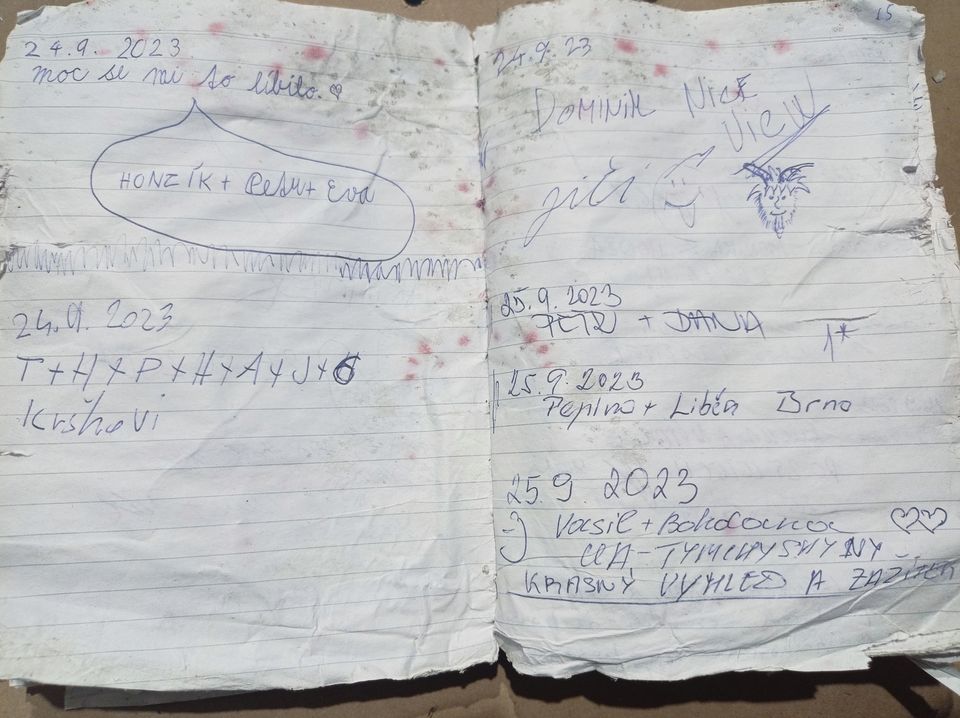 24.9. 2023
moc se mi to líbilo. ♡
HONZÍK + Petr + Eva
24.9. 2023
T+H+P+H+A+J+6
Krškovi
15
24.9.23
DOMINIK NICE
VIEW
Jiří
25.9.2023
PETR + DANA 1*
25.9.2023
Pepino + Liběn Brno
25.9. 2023
:) Vasil + Bohdana ♡♡
UA-TYMCHYSHYNY
KRASNÝ VYHLED A ZAŽITEK